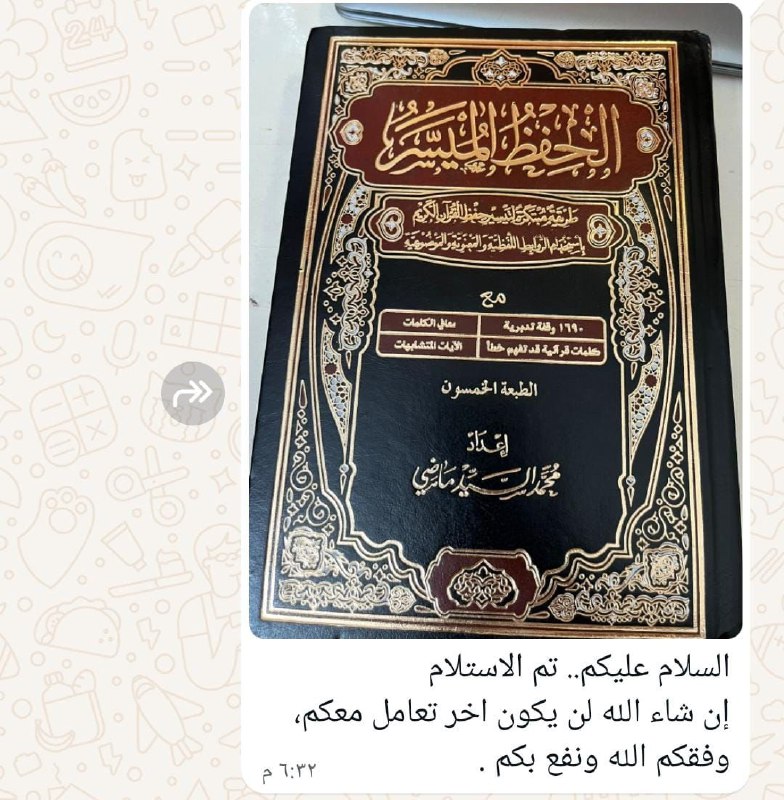 الحفظ الميسر
طريقة مبتكرة لتيسير حفظ القرآن الكريم
باستخدام الروابط اللفظية والمعنوية والموضوعية
مع
١٦٩٠ وقفة تدبرية
معاني الكلمات
كلمات قرآنية قد تفهم خطأ
الآيات المتشابهات
الطبعة الخمسون
إعداد
محمد السيد ماضي
السلام عليكم.. تم الاستلام
إن شاء الله لن يكون اخر تعامل معكم،
وفقكم الله ونفع بكم .
٦:٣٢ م